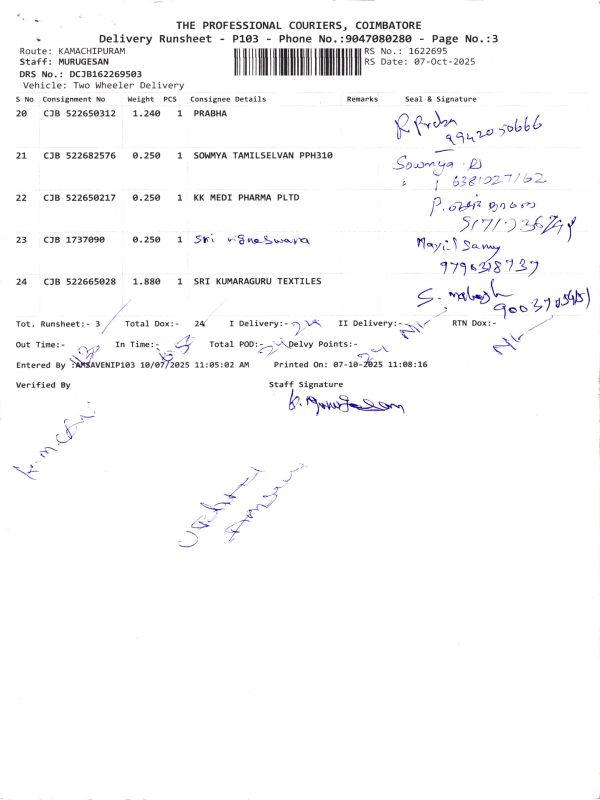 THE PROFESSIONAL COURIERS, COIMBATORE
Delivery Runsheet - P103 - Phone No.:9047080280 - Page No.:3
Route: KAMACHIPURAM RS No.: 1622695
Staff: MURUGESAN RS Date: 07-Oct-2025
DRS No.: DCJB162269503
Vehicle: Two Wheeler Delivery
S No Consignment No Weight PCS Consignee Details Remarks Seal & Signature
20 CJB 522650312 1.240 1 PRABHA R Preba
9942050666
21 CJB 522682576 0.250 1 SOWMYA TAMILSELVAN PPH310 Sowmya
6381027162
22 CJB 522650217 0.250 1 KK MEDI PHARMA PLTD
23 CJB 1737090 0.250 1 Sri vigneswara Mayil Samy
9796318737
24 CJB 522665028 1.880 1 SRI KUMARAGURU TEXTILES S. mahesh
Tot. Runsheet:- 3 Total Dox:- 24 I Delivery:- 24 II Delivery:- NIL RTN Dox:- NIL
Out Time:- In Time:- Total POD:- 24 Delvy Points:- 24
Entered By :AMSAVENIP103 10/07/2025 11:05:02 AM Printed On: 07-10-2025 11:08:16
Verified By Staff Signature
P. Murugesan